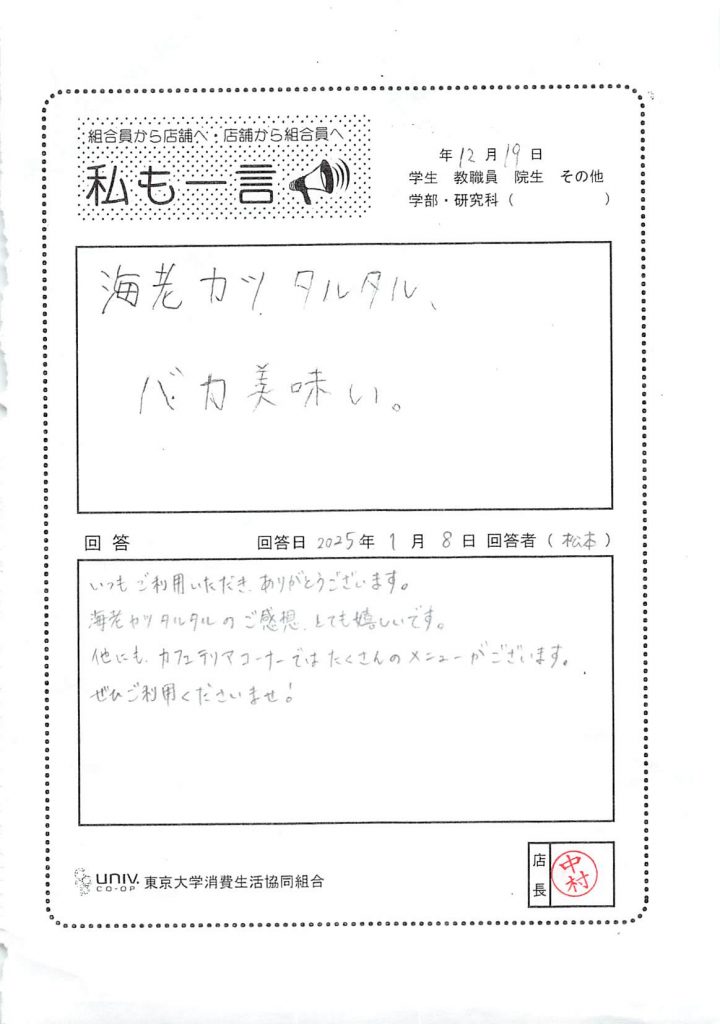 組合員から店舗へ・店舗から組合員へ
私も一言
年 12 月 19 日
学生 教職員 院生 その他
学部・研究科（ ）
海老カツタルタル、
バカ美味い。
回答 回答日 2025年 1月 8日 回答者（松本）
いつもご利用いただき、ありがとうございます。
海老カツタルタルのご感想、とても嬉しいです。
他にも、カフェテリアコーナーではたくさんのメニューがございます。
ぜひご利用くださいませ！
UNIV.
CO-OP
東京大学消費生活協同組合
店長
中村